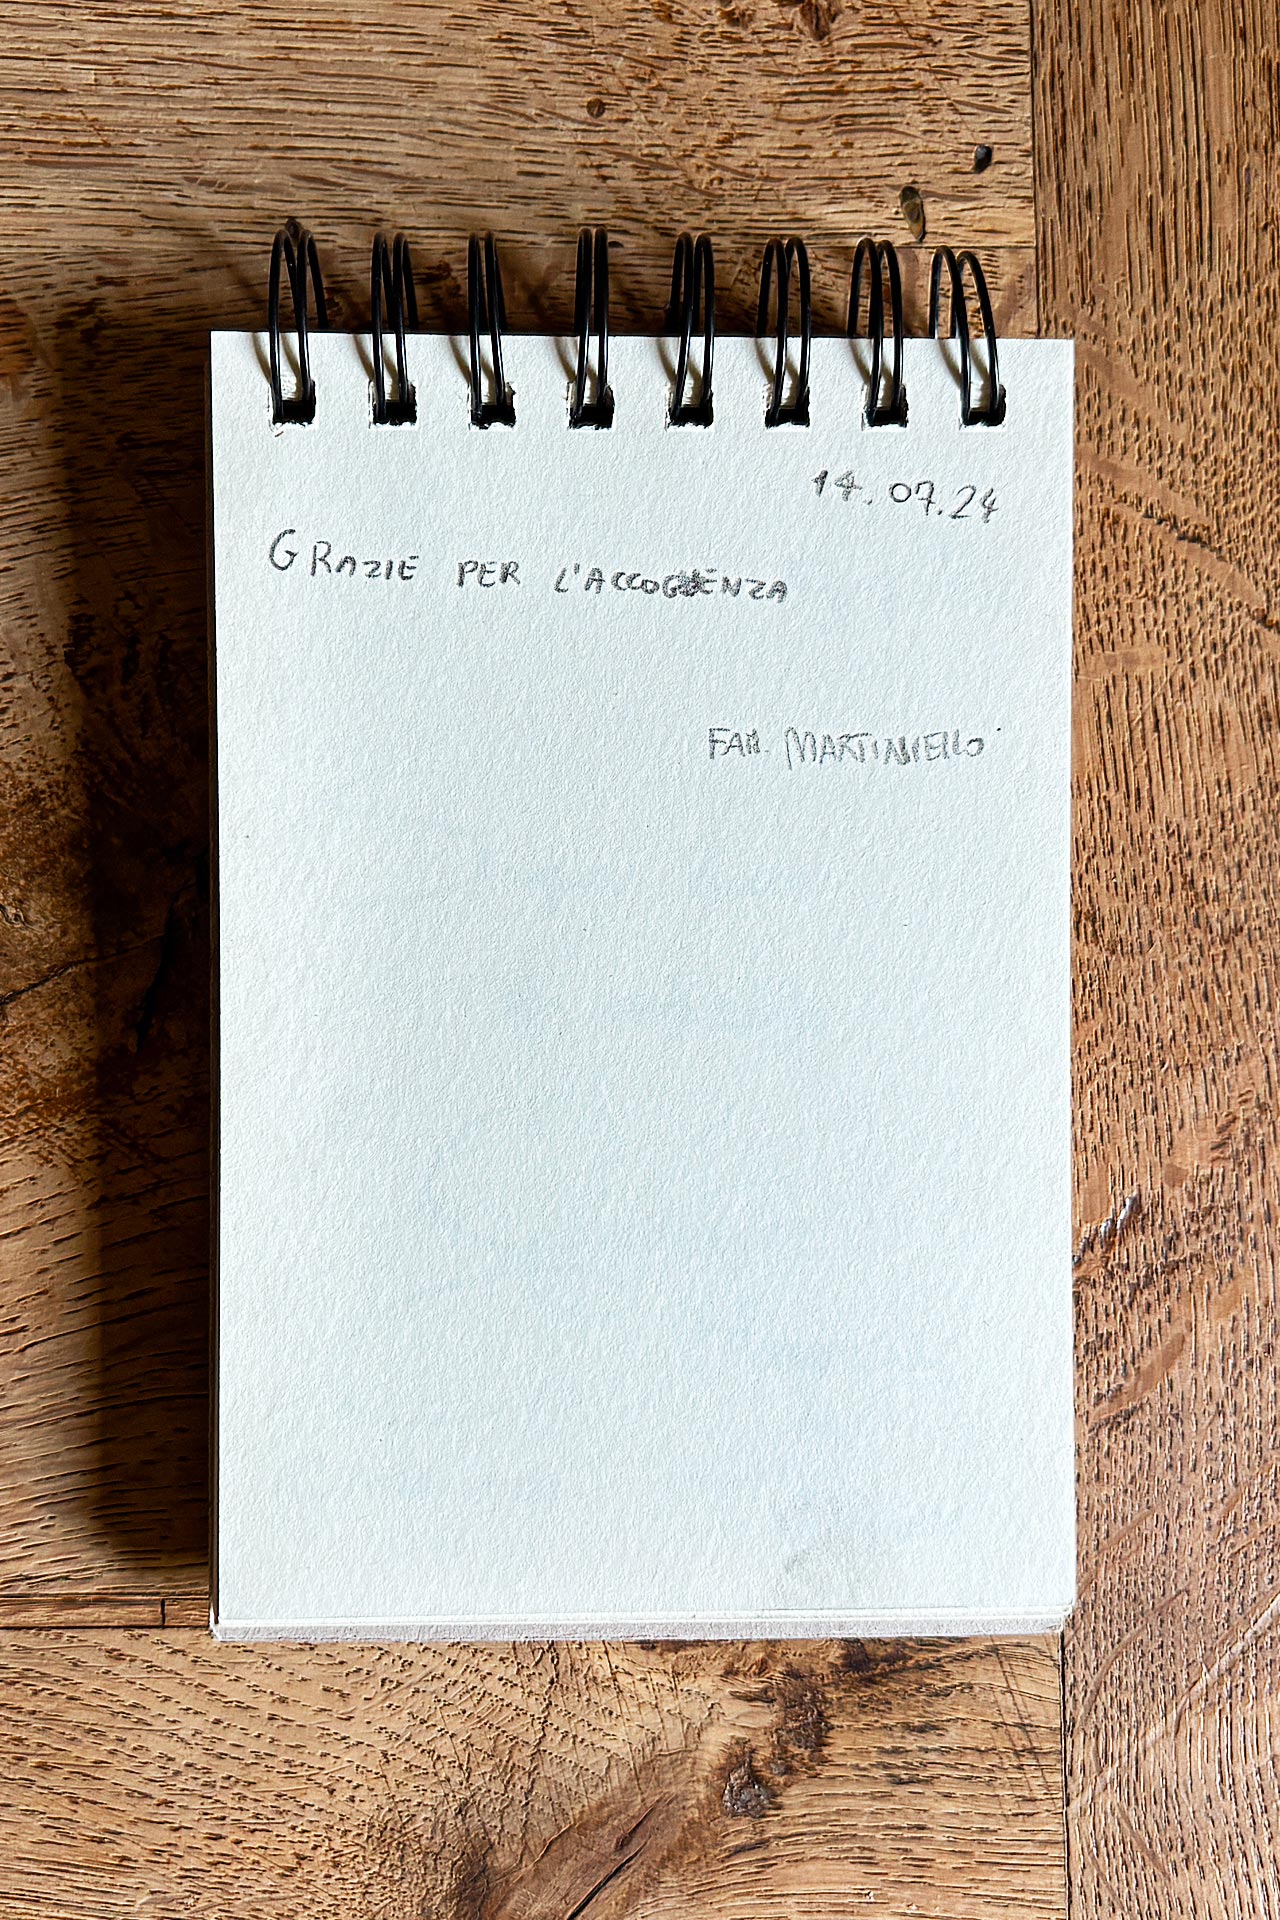 14.07.24
GRAZIE PER L'ACCOGLIENZA
FAM. MARTINIELLO